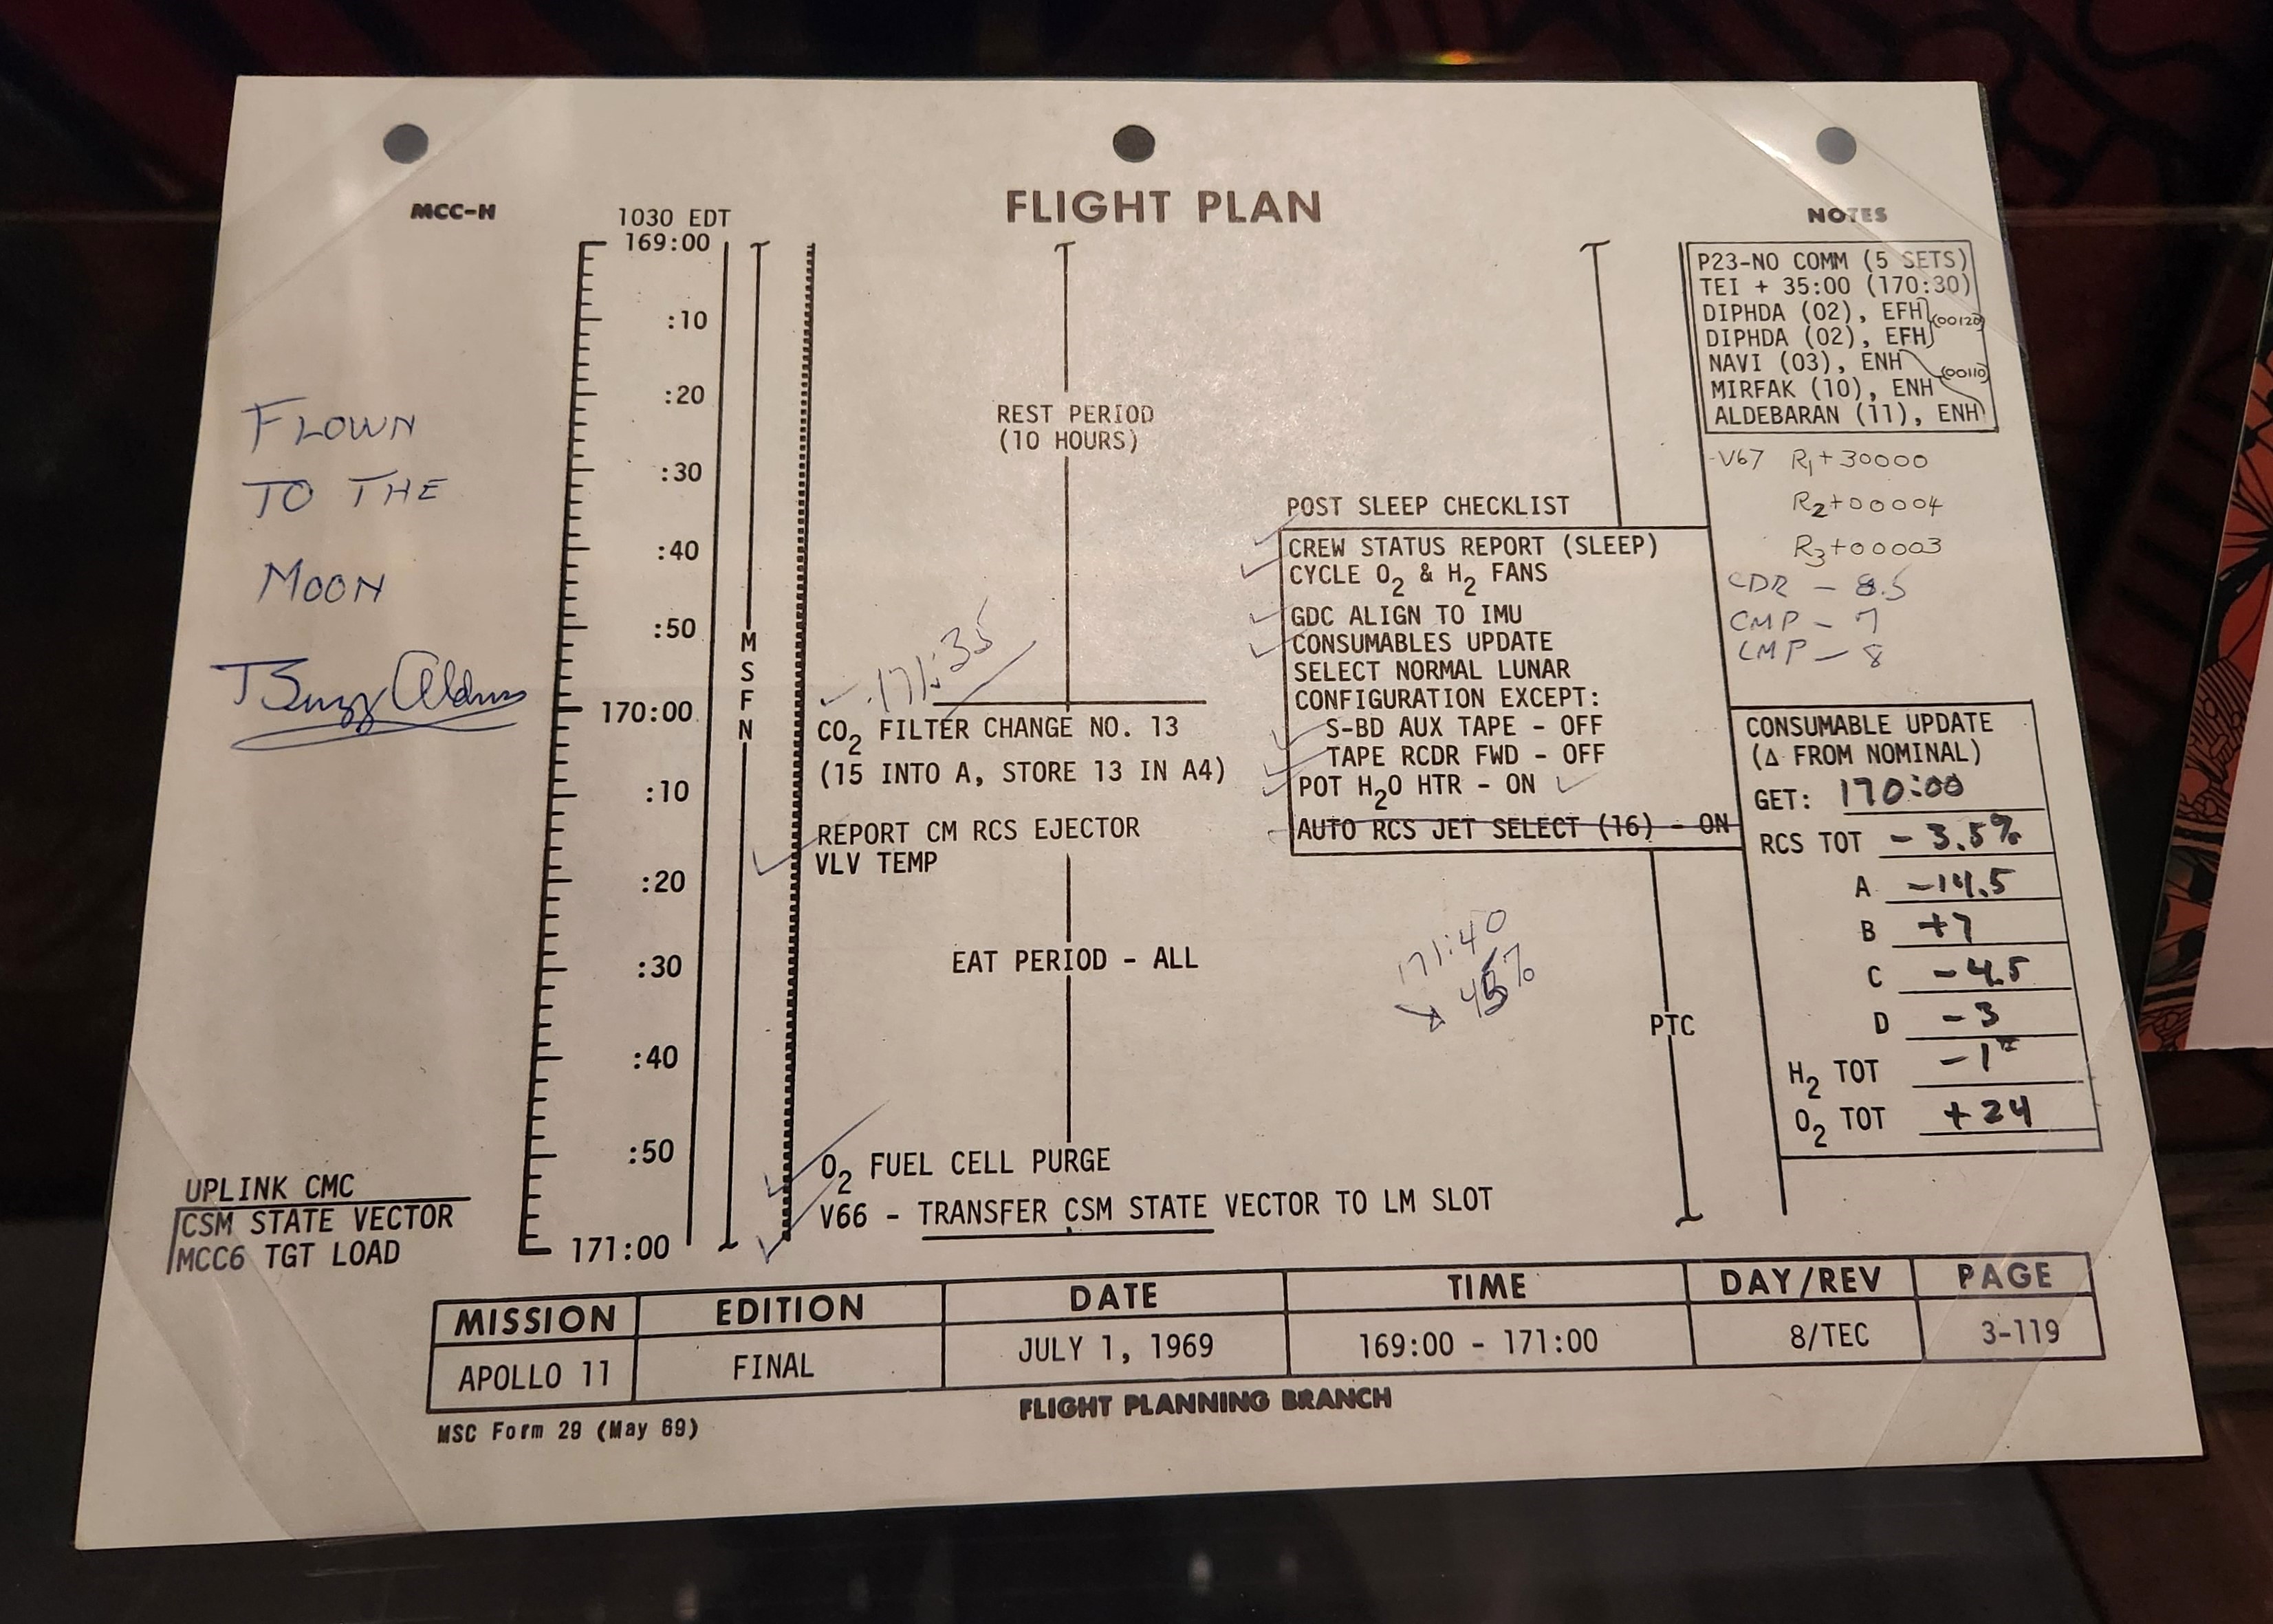 MCC-H
1030 EDT
FLIGHT PLAN
NOTES
169:00
:10
:20
:30
:40
:50
170:00
:10
:20
:30
:40
:50
171:00
M
S
F
N
FLOWN
TO THE
MOON
Buzz Aldrin
UPLINK CMC
CSM STATE VECTOR
MCC6 TGT LOAD
REST PERIOD
(10 HOURS)
171:35
CO2 FILTER CHANGE NO. 13
(15 INTO A, STORE 13 IN A4)
REPORT CM RCS EJECTOR
VLV TEMP
EAT PERIOD - ALL
O2 FUEL CELL PURGE
V66 - TRANSFER CSM STATE VECTOR TO LM SLOT
POST SLEEP CHECKLIST
CREW STATUS REPORT (SLEEP)
CYCLE O2 & H2 FANS
GDC ALIGN TO IMU
CONSUMABLES UPDATE
SELECT NORMAL LUNAR
CONFIGURATION EXCEPT:
S-BD AUX TAPE - OFF
TAPE RCDR FWD - OFF
POT H2O HTR - ON
AUTO RCS JET SELECT (16) - ON
171:40
PTC
P23-NO COMM (5 SETS)
TEI + 35:00 (170:30)
DIPHDA (02), EFH (00120)
DIPHDA (02), EFH
NAVI (03), ENH
MIRFAK (10), ENH (00110)
ALDEBARAN (11), ENH
-V67 R1+30000
R2+00004
R3+00003
CDR - 8.5
CMP - 7
LMP - 8
CONSUMABLE UPDATE
(Δ FROM NOMINAL)
GET: 170:00
RCS TOT - 3.5%
A -14.5
B +7
C -4.5
D -3
H2 TOT -1#
O2 TOT +24
MISSION EDITION DATE TIME DAY/REV PAGE
APOLLO 11 FINAL JULY 1, 1969 169:00 - 171:00 8/TEC 3-119
MSC Form 29 (May 69)
FLIGHT PLANNING BRANCH